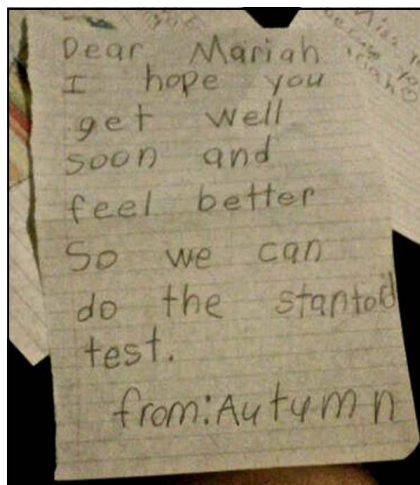 Dear Mariah
I hope you
get well
soon and
feel better
So we can
do the stantoid
test.
from: Autumn